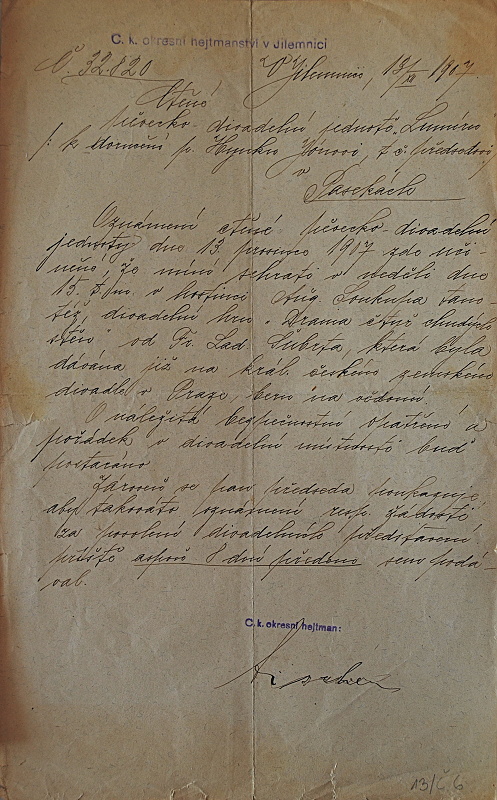 C. k. okresní hejtmanství v Jilemnici
Č. 32.820
V Jilemnici, 13/XII 1907.
Ctěné
pěvecko-divadelní jednotě „Lumíru“
k. p. Hynku Jónovi, t. č. předsedovi
v
Pasekách
Oznámení ctěné pěvecko-divadelní
jednoty dne 13. prosince 1907 zde uči-
něné, že míní sehrati v neděli dne
15. t. m. v hostinci Aug. Soukupa tam-
též, divadelní hru „Drama čtyř chudých
stěn“ od Fr. Lad. Šuberta, která byla
dávána již na král. českém zemském
divadle v Praze, béru na vědomí.
O náležitá bezpečnostní opatření a
pořádek v divadelní místnosti buď
postaráno
Zároveň se pan předseda poukazuje,
aby takováto oznámení resp. žádosti
za povolení divadelních představení
příště aspoň 8 dní předem sem podá-
val.
C. k. okresní hejtman:
13/č. 6